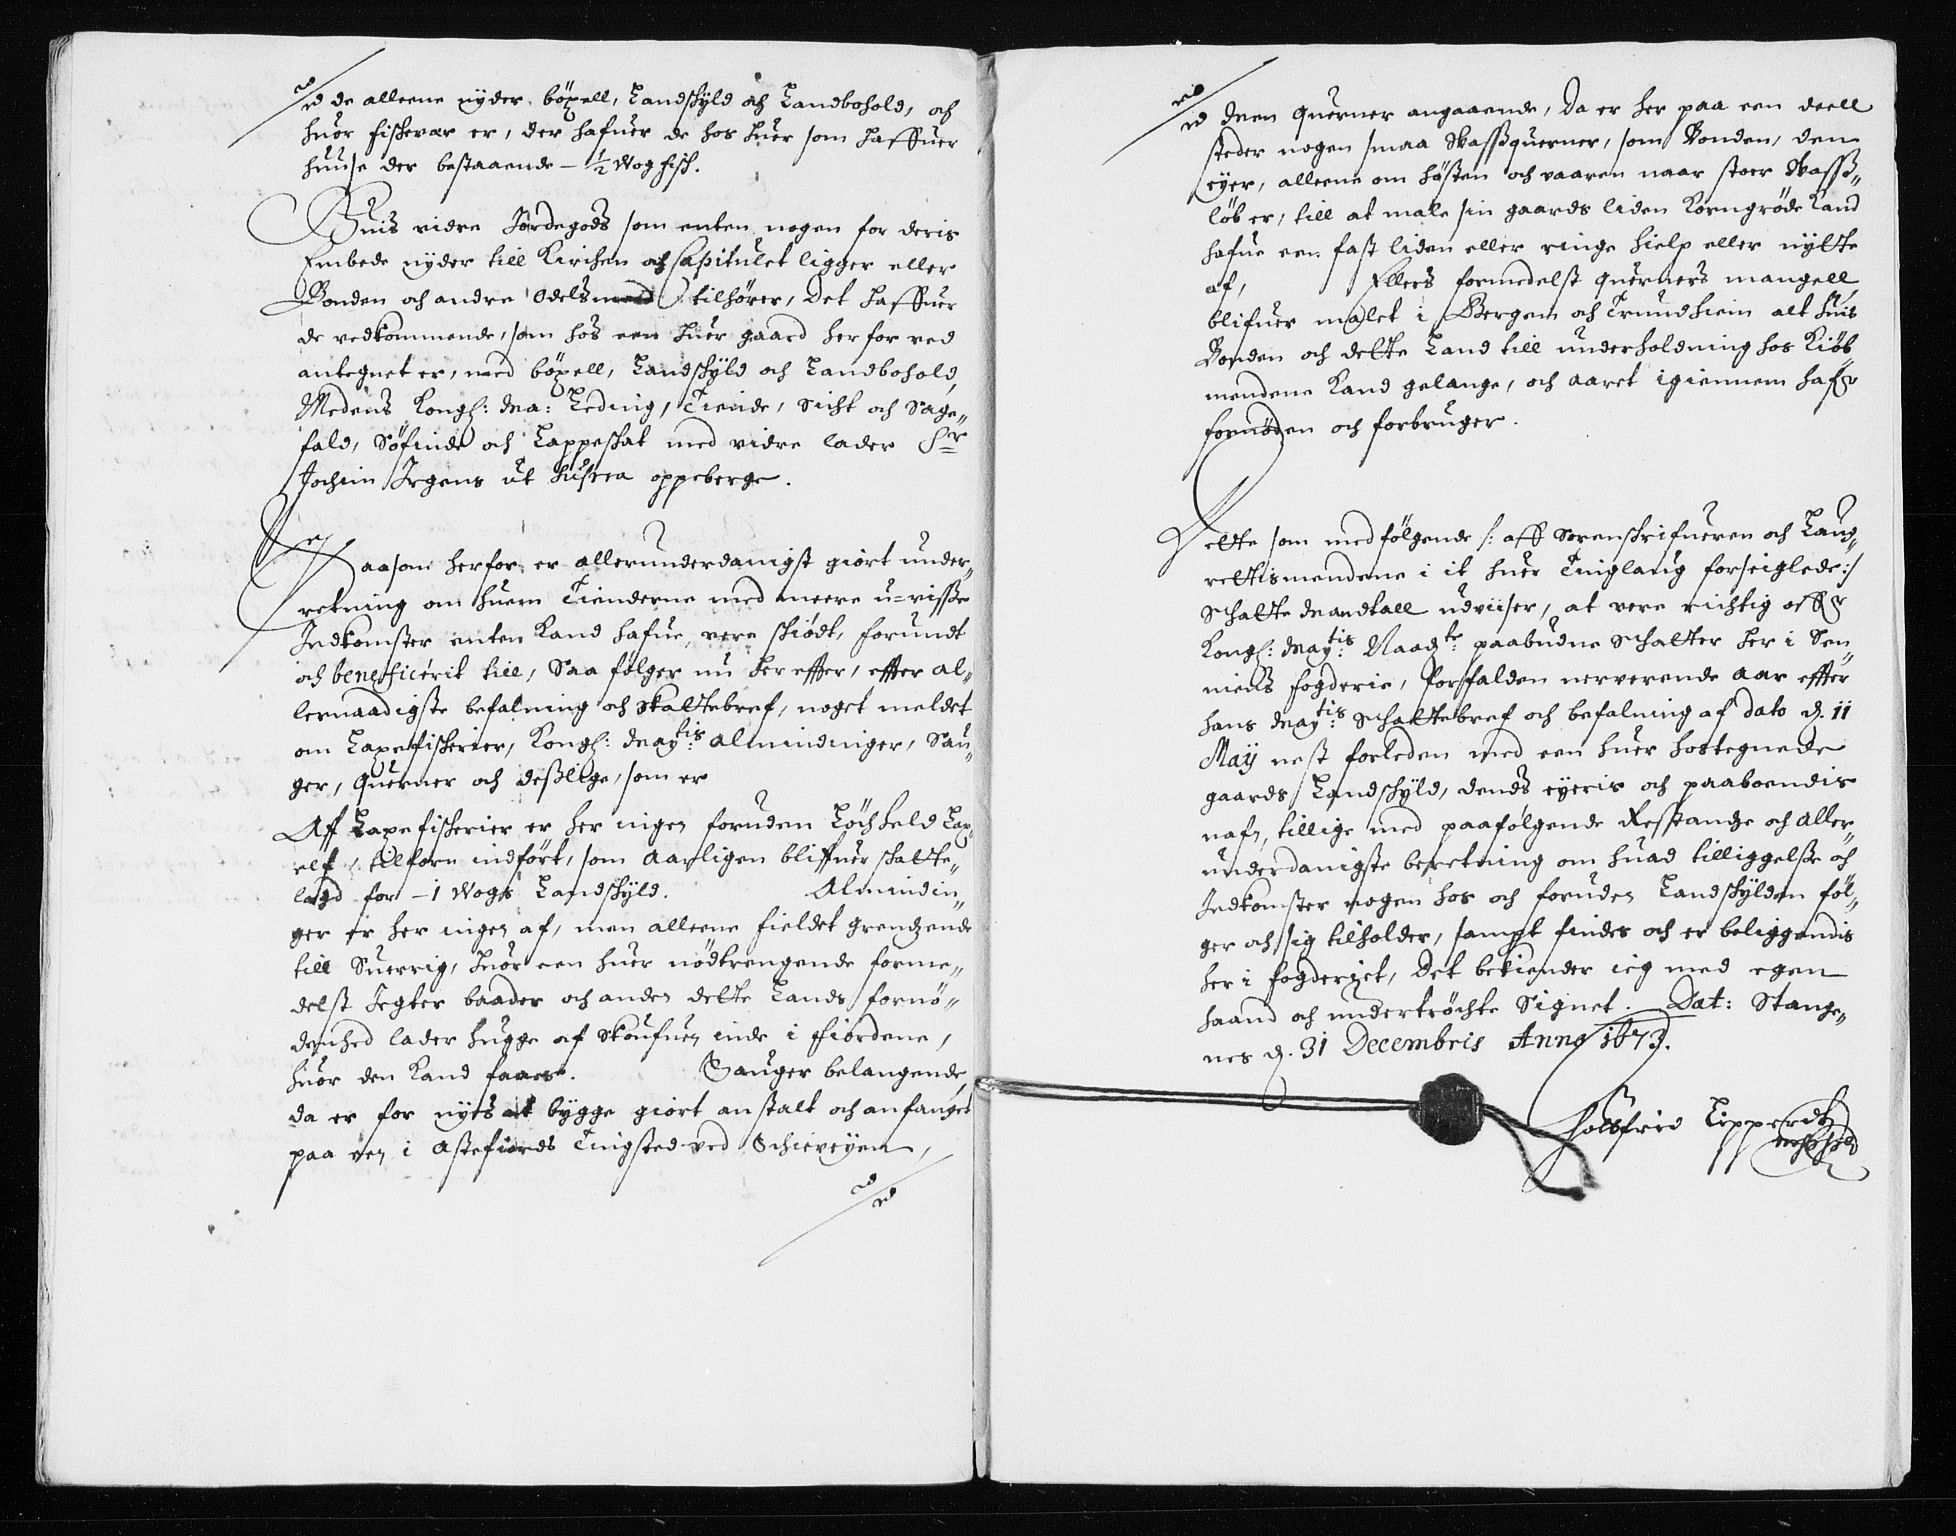 de alleene nyder, böxell, Landskyld och Landbohold, och
huor fiskevær er, der hafuer de hos huer som haffuer
huuse der bestaaende - ½ Wog fisk.
Huis vidre Jordegods som enten nogen for deris
Embede nyder till Kircken och Capitulet ligger eller
Bonden och andre Odels tilhörer, Det haffuer
de vedkommende, som hos een huer gaard her for ved
antegnet er, med böxell, Landskyld och Landbohold,
Medens Kongl: Ma: Leding, Tiende, Sicht och Sage„
fald, Söfinde och Lappeskat med vidre lader Hr
Jochim Irgens ut supra oppeberge.
Saasom herfor er allerunderdanigst giort under„
retning om huem Tienderne med meere u=visse
Indkomster enten Kand hafue, vere skiödt, forundt
och beneficerit till, Saa fölger nu her effter, effter al„
lernaadigste befalning och Skattebref, noget meldet
om Laxefiskerier, Kongl: Maytis Almindinger, Sau„
ger, Querner och deslige, som er
Aff Laxefiskerier er her ingen foruden Löchheld Lax„
elf, tilforn indfört, som Aarligen bliffuer skatte„
lagd for - 1 Wogs Landskyld. Almindin„
ger er her ingen af, men alleene fieldet grendzende
till Suerrig, huor een huer nödtrengende forme„
delst Jegter baader och anden dette Lands fornö„
denhed lader hugge af Skoufuen inde i ffiordene,
huor den Kand faaes. Sauger belangende,
da er for nyes at bygge giort anstalt och anfanget
paa een i Astefiords Tingsted ved Schieveyen,
Men Querner angaaende, Da er her paa een deell
steder nogen smaa Wassquerner, som Bonden, dem
eyer, alleene om hösten och vaaren naar stoer Wass„
löb er, till at male sin gaards liden Korngröde Kand
hafue een fast liden eller ringe hielp eller nytte
af, Ellers formedelst Querners mangell
blifuer malet i Bergen och Trundhiem alt huis
Bonden och dette Land till underholdning hos Kiöb„
mendene Kand gelange, och aaret igiennem hafr
fornöden och forbruger.
Dette som medfölgende /: aff Sorenskrifueren och Laug„
rettismendene i it huer Tinglaug forseiglede :/
Schatte Mandtall udviiser, at vere richtig offr
Kongl: Maytis Naadte paabudne Schatter her i Sen„
niens fogderie, forfalden nerverende Aar effter
hans Maytis Schattebref och befalning af dato d. 11
May nest forleden med een huer hostegnede
gaards Landschyld, dends eyeris och paaboendis
nafn, tillige med paafölgende Restandze och Aller„
underdanigste beretning om huad tilliggelsse och
Indkomster nogen hos och foruden Landskylden föl„
ger och sig tilholder, sampt findes och er beliggendis
her i fogderiet, Det bekiender ieg med egen
haand och undertröchte Signet. Dat: Stange„
nes d. 31 Decembris Anno 1673.